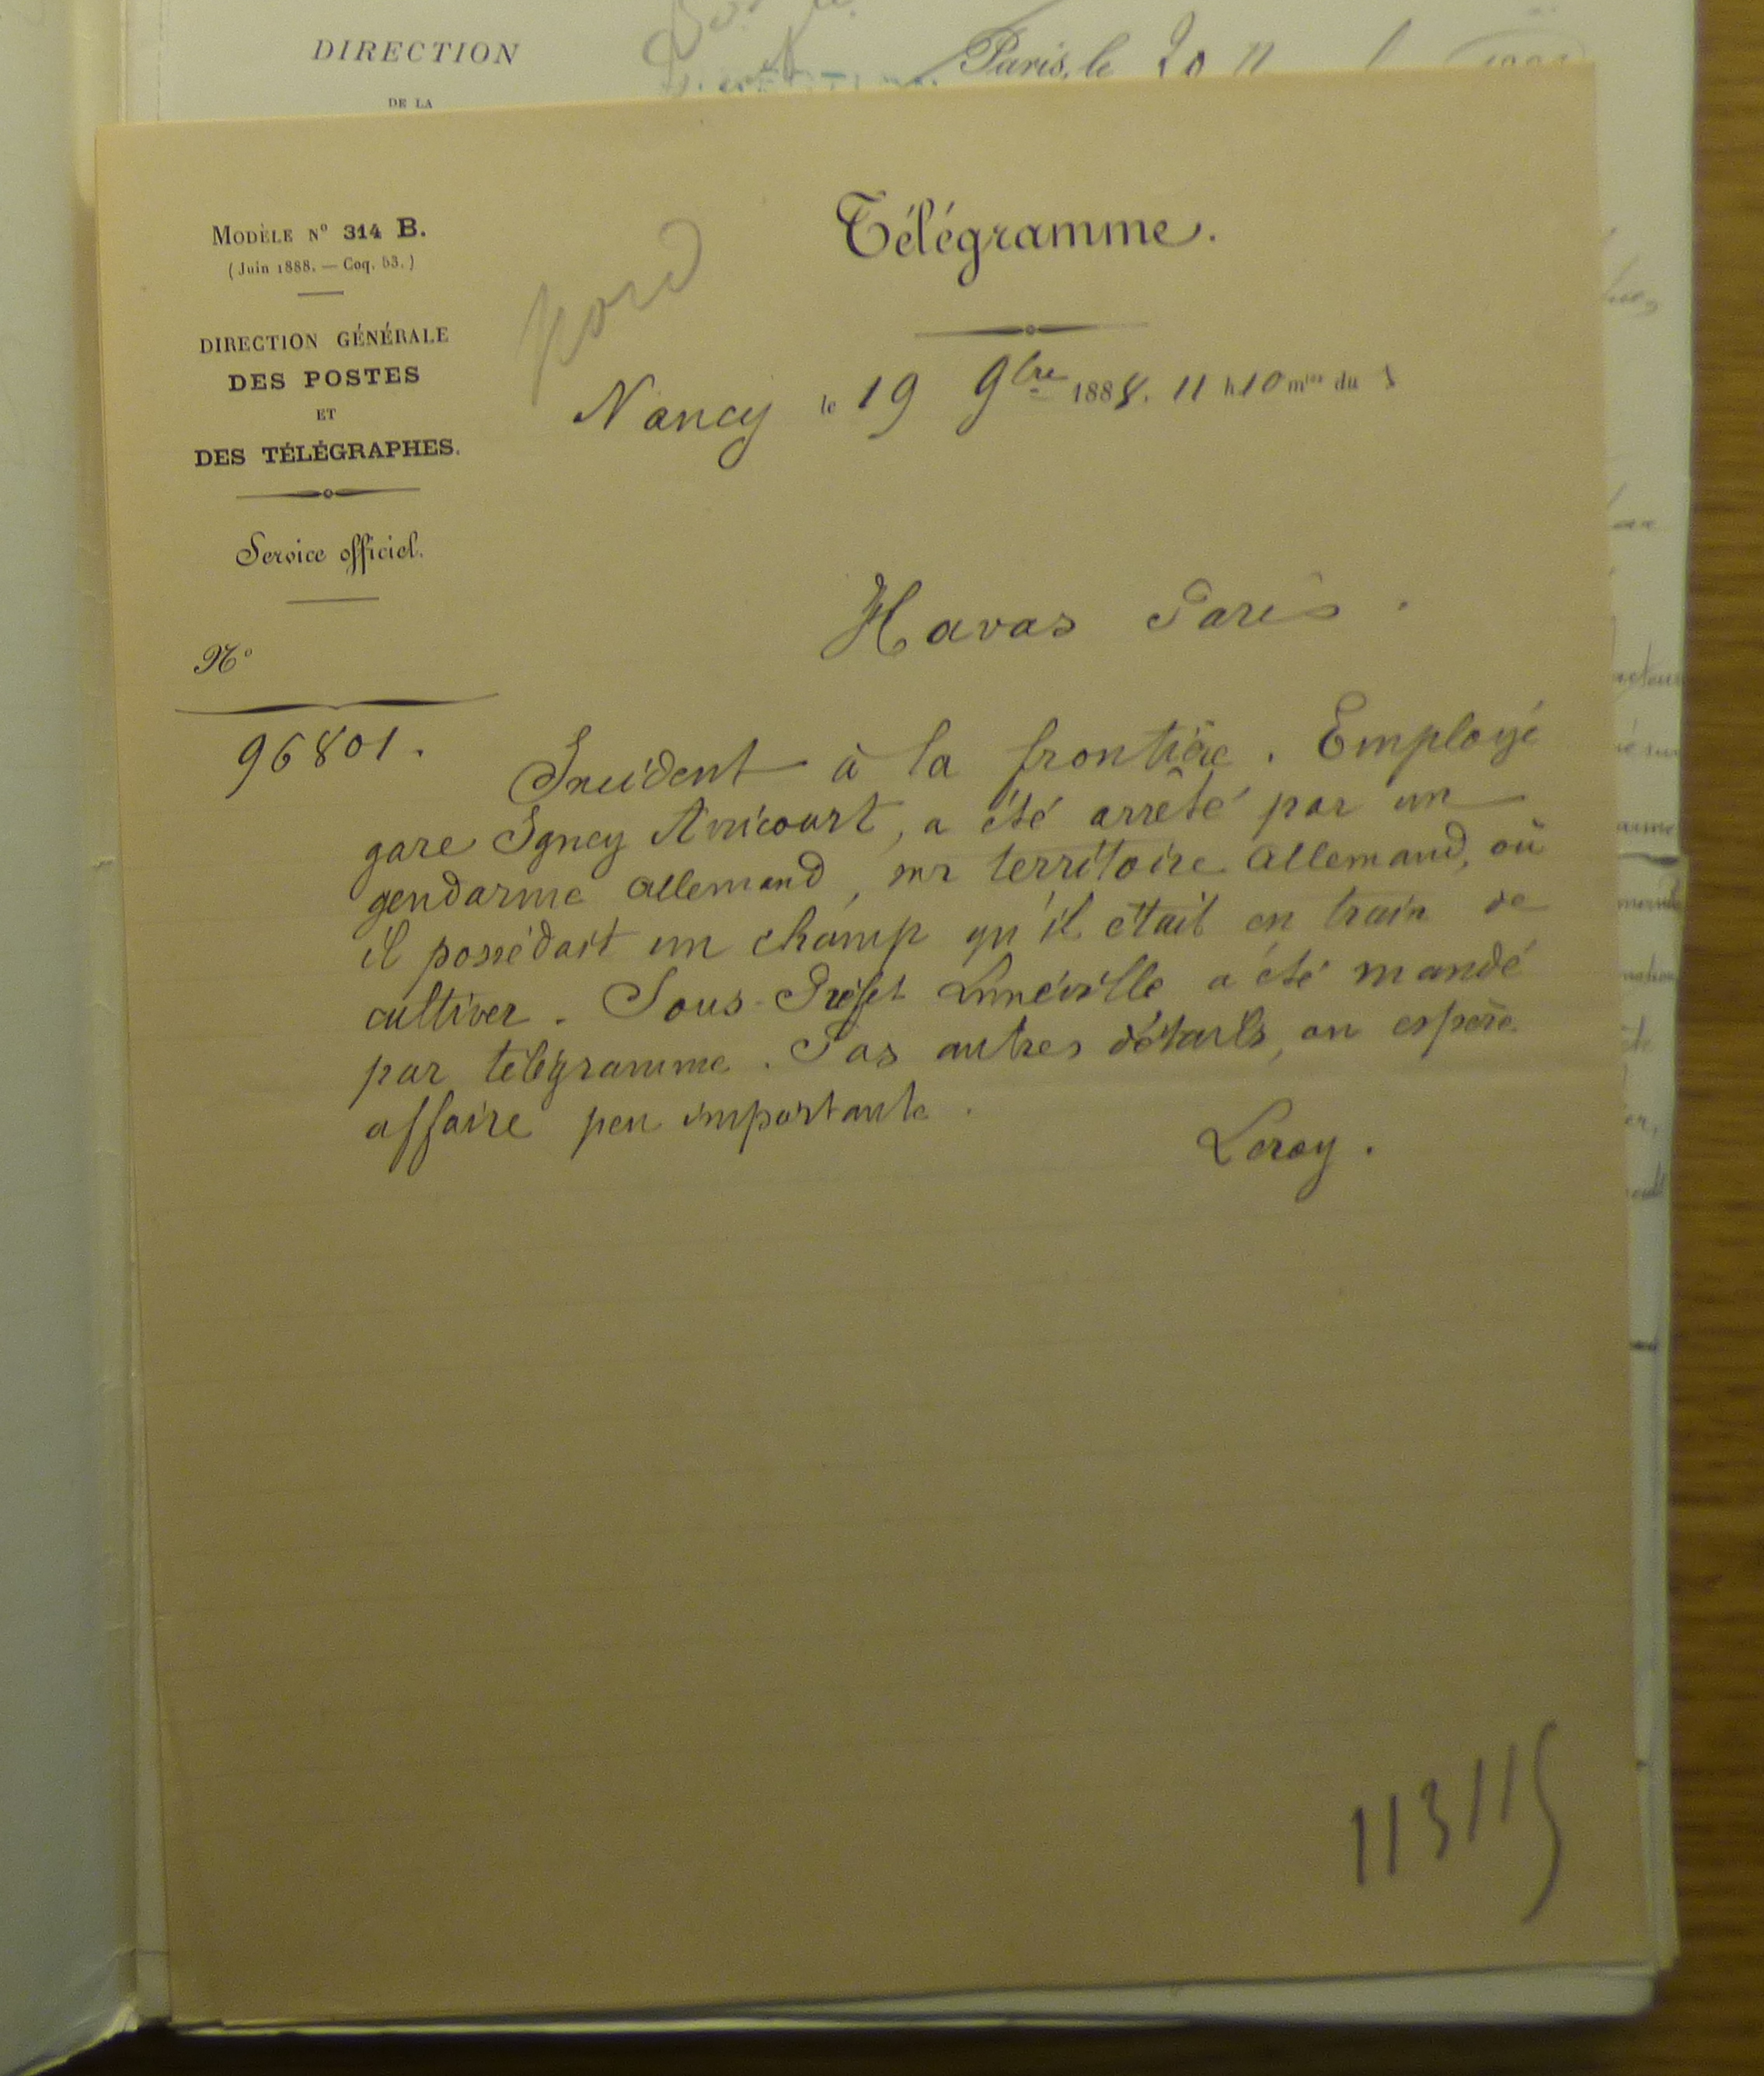 DIRECTION
DE LA
Paris, le 20 11
MODÈLE N° 314 B.
(Juin 1888. — Coq. 53.)
DIRECTION GÉNÉRALE
DES POSTES
ET
DES TÉLÉGRAPHES.
Service officiel.
N°
96801.
Télégramme.
Nancy le 19 9bre 1888. 11 h 10 mtes du s
Havas Paris.
Incident à la frontière. Employé
gare Igney Avricourt, a été arrêté par un
gendarme allemand, sur territoire allemand, où
il possédait un champ qu'il était en train de
cultiver. Sous-Préfet Lunéville a été mandé
par télégramme. Pas autres détails, on espère
affaire peu importante.
Leroy.